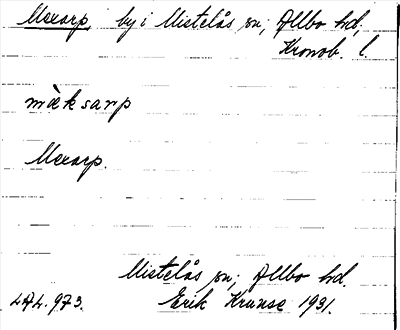 Mexarp, by i Mistelås sn; Allbo hd,
Kronob. l.
mæ̀ksarp
Mexarp.
Mistelås sn; Allbo hd.
LAL. 973. Erik Krunse 1931.